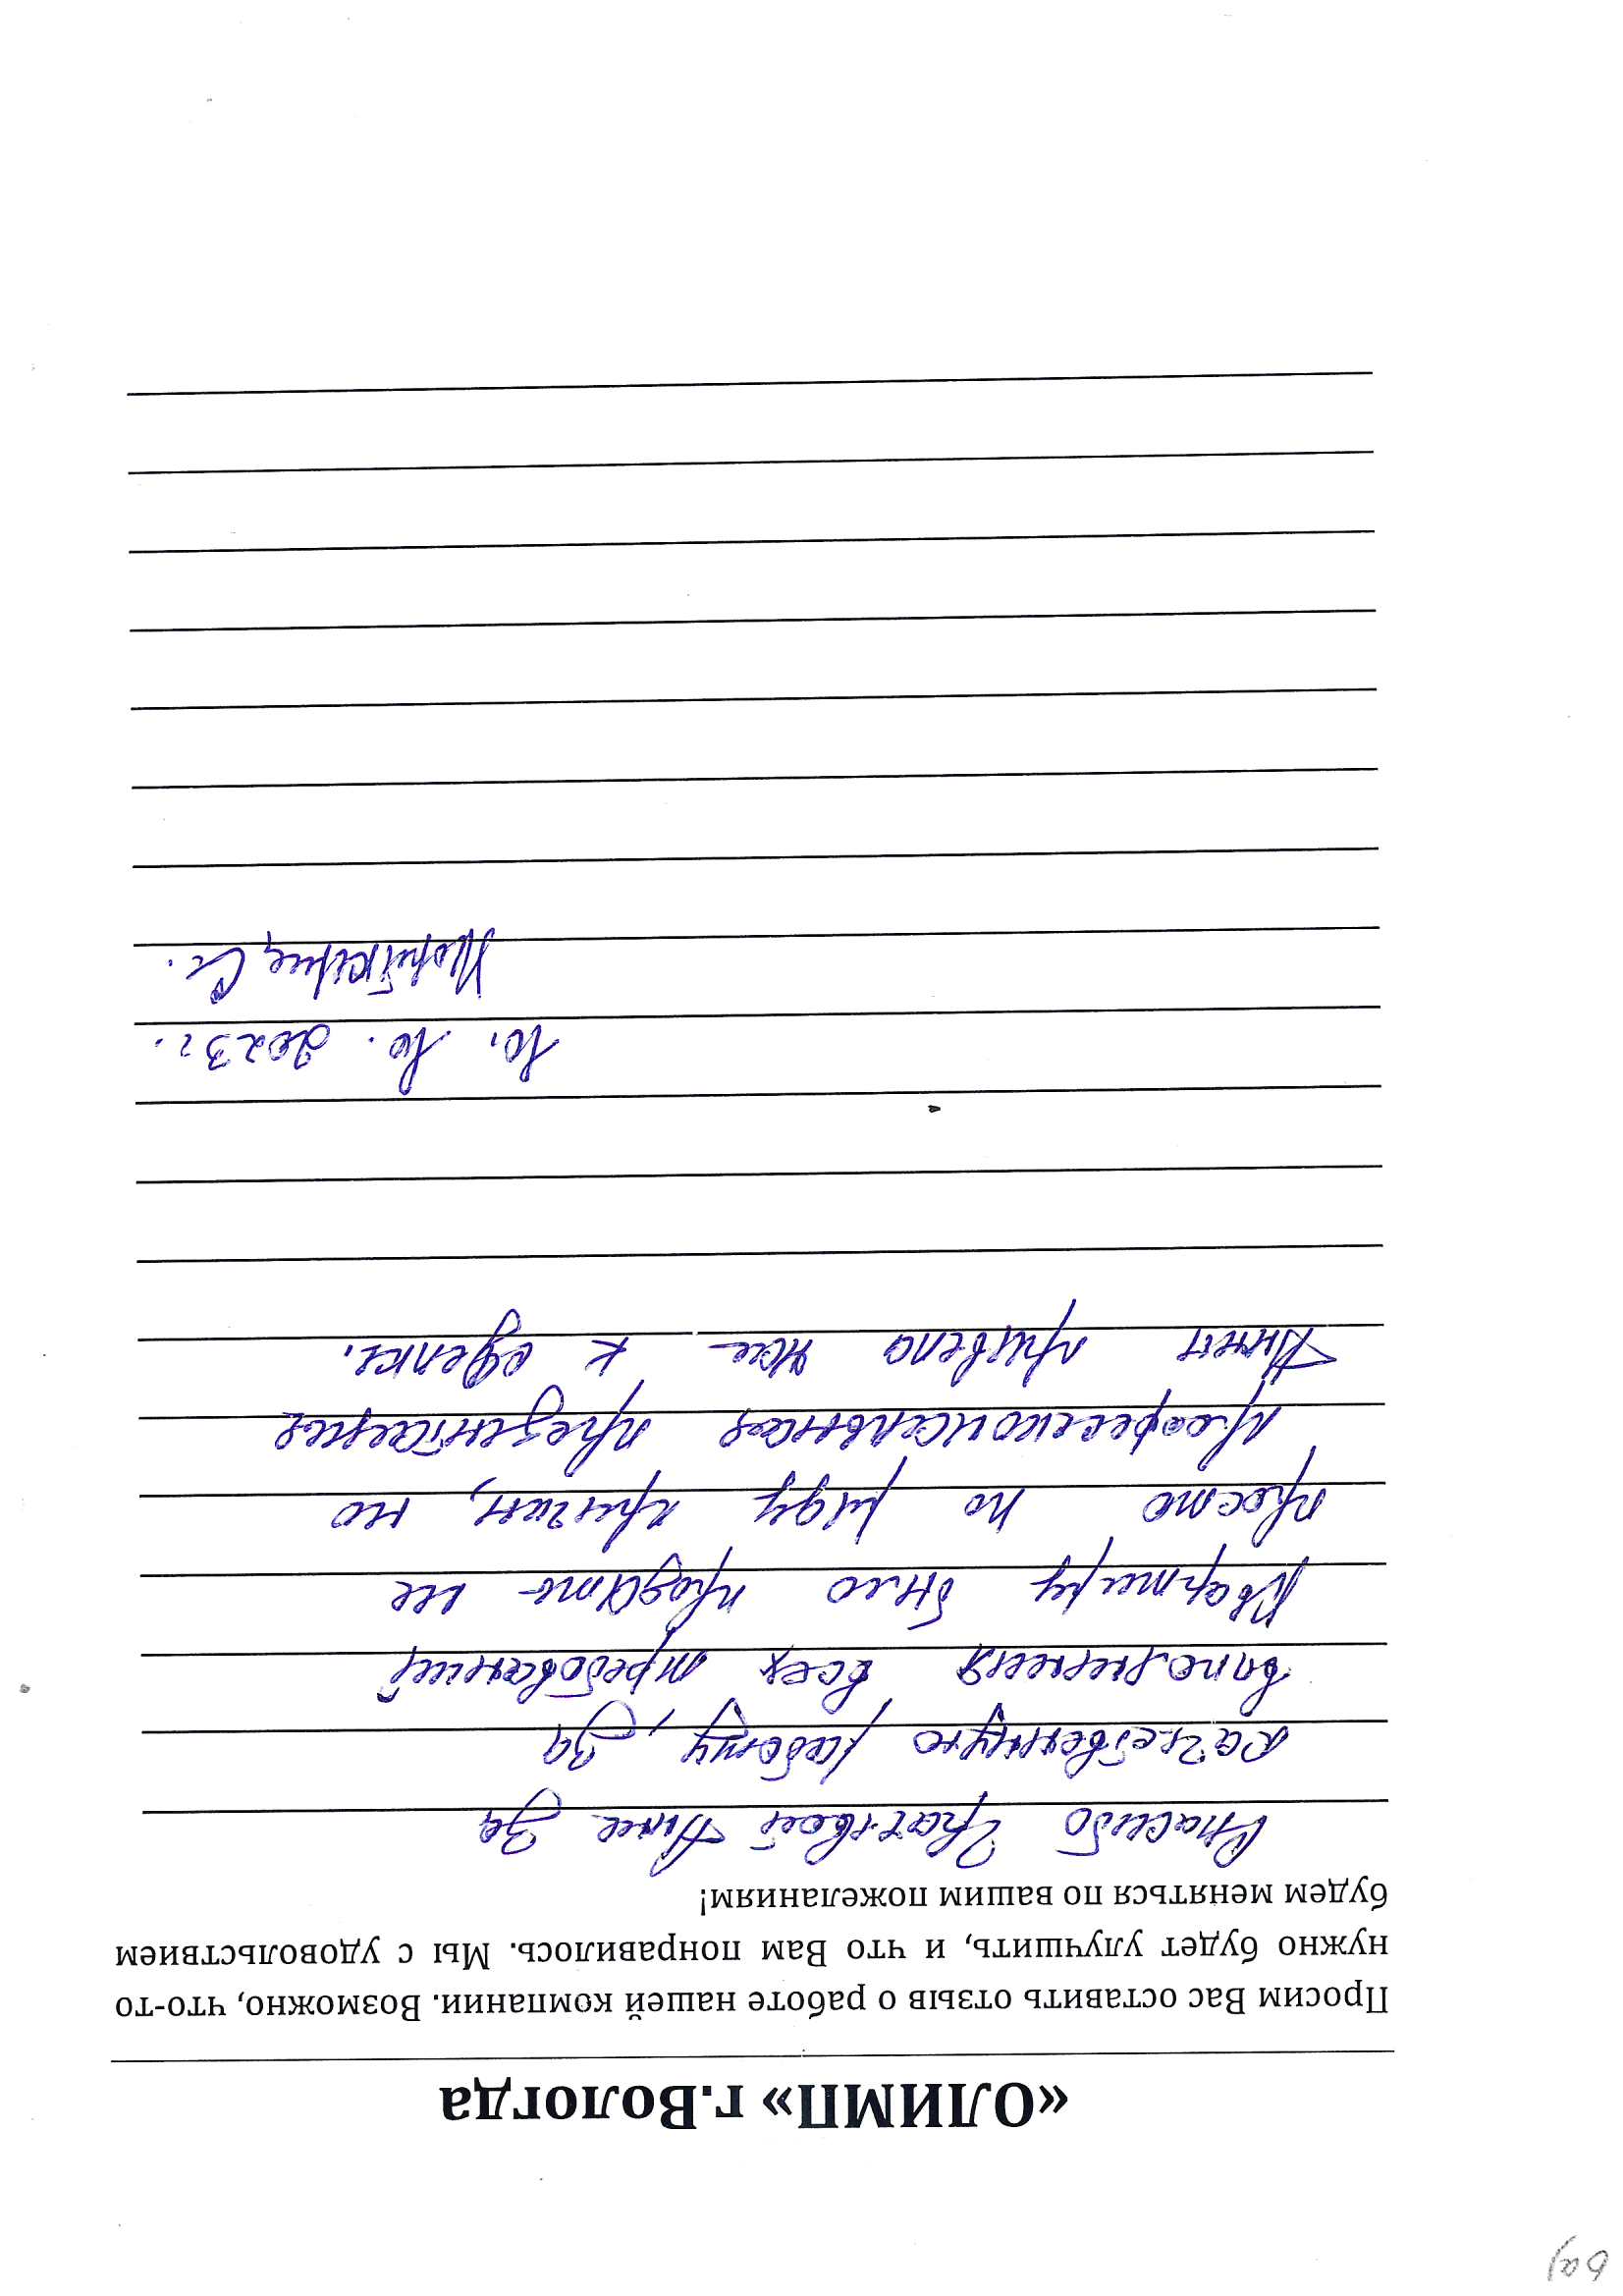 ва)
«ОЛИМП» г.Вологда
Просим Вас оставить отзыв о работе нашей компании. Возможно, что-то
нужно будет улучшить, и что Вам понравилось. Мы с удовольствием
будем меняться по вашим пожеланиям!
Спасибо Грачевой Анне за
качественную работу, за
выполнения всех требований
Квартиру было продать не
просто по ряду причин, но
профессиональная презентация
Анны привела нас к сделке.
10. 10. 2023г.
С.